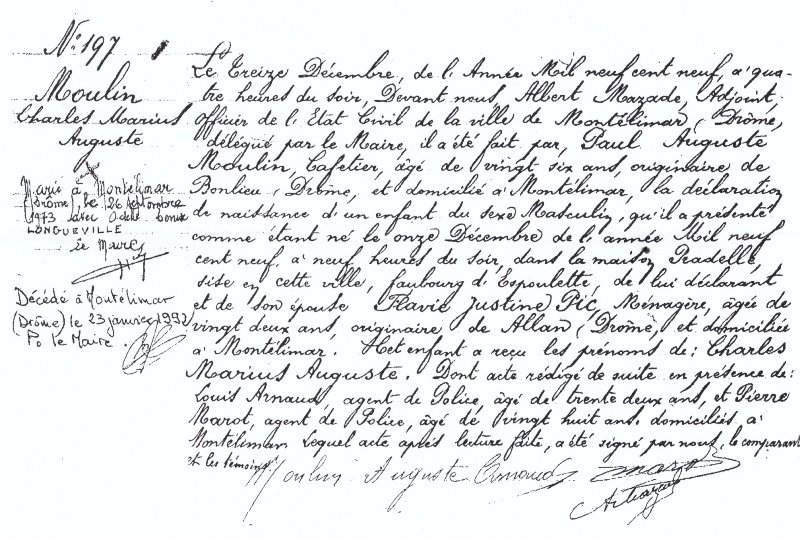 N° 197
Moulin
Charles Marius
Auguste
Marié à Montélimar
(Drôme) le 26 septembre
1973 avec Odette
LONGUEVILLE
Le Maire
Décédé à Montélimar
(Drôme) le 23 janvier 1992
Po le Maire.
Le Treize Décembre, de l'Année Mil neuf cent neuf, à qua-
tre heures du soir, Devant nous, Albert Mazade, Adjoint
officier de l'Etat Civil de la ville de Montélimar (Drôme,
délégué par le Maire, il a été fait par, Paul Auguste
Moulin, Cafetier, âgé de vingt six ans, originaire de
Bonlieu (Drôme, et domicilié à Montélimar, la déclaration
de naissance d'un enfant du sexe Masculin, qu'il a présenté
comme étant né le onze Décembre de l'année Mil neuf
cent neuf, à neuf heures du soir, dans la maison Pradelle,
sise en cette ville, faubourg d'Espoulette, de lui déclarant
et de son épouse Flavie Justine Pic, Ménagère, âgée de
vingt deux ans, originaire de Allan (Drôme, et domiciliée
à Montélimar. Cet enfant a reçu les prénoms de: Charles
Marius Auguste. Dont acte rédigé de suite en présence de:
Louis Arnaud, agent de Police, âgé de trente deux ans, et Pierre
Marot, agent de Police, âgé de vingt huit ans, domiciliés à
Montélimar. Lequel acte après lecture faite, a été signé par nous, le comparant
et les témoins.
Moulin Auguste Arnaud Marot